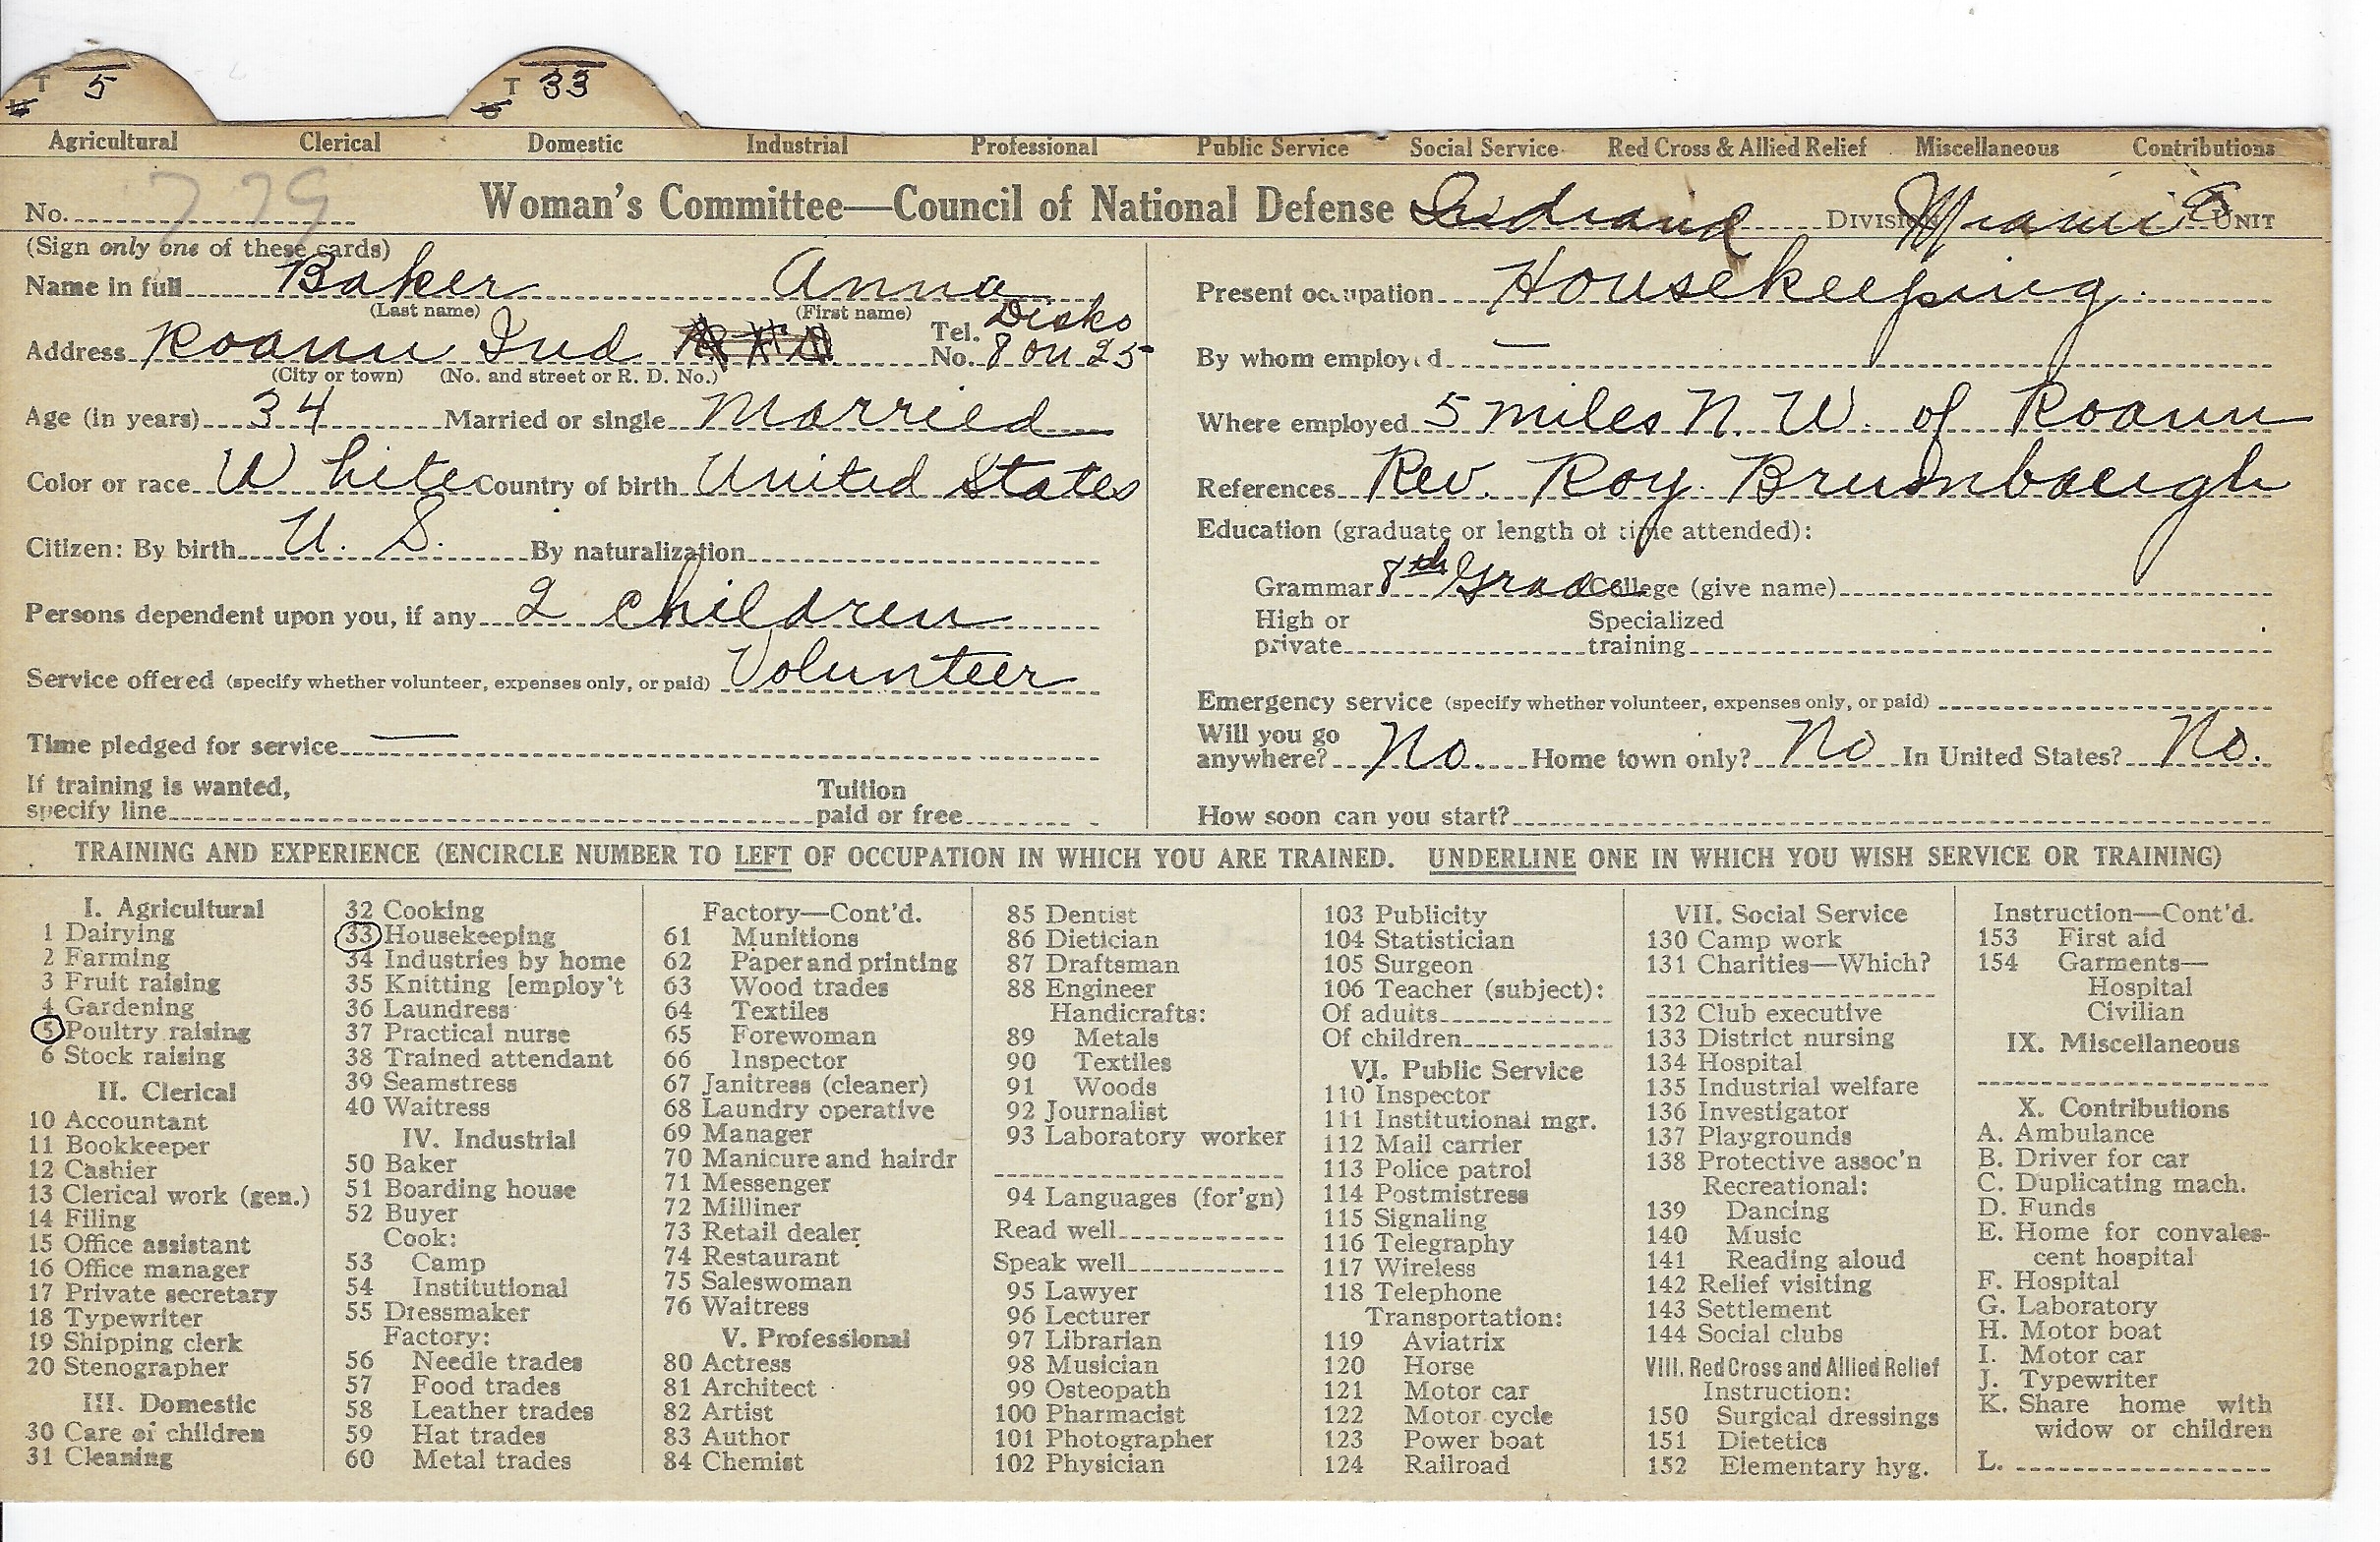 T 5 T 33
Agricultural Clerical Domestic Industrial Professional Public Service Social Service Red Cross & Allied Relief Miscellaneous Contributions
No. 779 Woman's Committee—Council of National Defense Indiana DIVISION Miami UNIT
(Sign only one of these cards)
Name in full Baker Anna
(Last name) (First name)
Address Roann Ind Tel. No. Disko 8 on 25
(City or town) (No. and street or R. D. No.)
Age (in years) 34 Married or single Married
Color or race White Country of birth United States
Citizen: By birth U. S. By naturalization
Persons dependent upon you, if any 2 children
Service offered (specify whether volunteer, expenses only, or paid) Volunteer
Time pledged for service —
If training is wanted,
specify line Tuition paid or free
Present occupation Housekeeping
By whom employed —
Where employed 5 miles N. W. of Roann
References Rev. Roy Brumbaugh
Education (graduate or length of time attended):
Grammar 8th Grade College (give name)
High or private Specialized training
Emergency service (specify whether volunteer, expenses only, or paid)
Will you go anywhere? No Home town only? No In United States? No.
How soon can you start?
TRAINING AND EXPERIENCE (ENCIRCLE NUMBER TO LEFT OF OCCUPATION IN WHICH YOU ARE TRAINED. UNDERLINE ONE IN WHICH YOU WISH SERVICE OR TRAINING)
I. Agricultural
1 Dairying
2 Farming
3 Fruit raising
4 Gardening
5 Poultry raising
6 Stock raising
II. Clerical
10 Accountant
11 Bookkeeper
12 Cashier
13 Clerical work (gen.)
14 Filing
15 Office assistant
16 Office manager
17 Private secretary
18 Typewriter
19 Shipping clerk
20 Stenographer
III. Domestic
30 Care of children
31 Cleaning
32 Cooking
33 Housekeeping
34 Industries by home
35 Knitting [employ't
36 Laundress
37 Practical nurse
38 Trained attendant
39 Seamstress
40 Waitress
IV. Industrial
50 Baker
51 Boarding house
52 Buyer
Cook:
53 Camp
54 Institutional
55 Dressmaker
Factory:
56 Needle trades
57 Food trades
58 Leather trades
59 Hat trades
60 Metal trades
Factory—Cont'd.
61 Munitions
62 Paper and printing
63 Wood trades
64 Textiles
65 Forewoman
66 Inspector
67 Janitress (cleaner)
68 Laundry operative
69 Manager
70 Manicure and hairdr
71 Messenger
72 Milliner
73 Retail dealer
74 Restaurant
75 Saleswoman
76 Waitress
V. Professional
80 Actress
81 Architect
82 Artist
83 Author
84 Chemist
85 Dentist
86 Dietician
87 Draftsman
88 Engineer
Handicrafts:
89 Metals
90 Textiles
91 Woods
92 Journalist
93 Laboratory worker
94 Languages (for'gn)
Read well
Speak well
95 Lawyer
96 Lecturer
97 Librarian
98 Musician
99 Osteopath
100 Pharmacist
101 Photographer
102 Physician
103 Publicity
104 Statistician
105 Surgeon
106 Teacher (subject):
Of adults
Of children
VI. Public Service
110 Inspector
111 Institutional mgr.
112 Mail carrier
113 Police patrol
114 Postmistress
115 Signaling
116 Telegraphy
117 Wireless
118 Telephone
Transportation:
119 Aviatrix
120 Horse
121 Motor car
122 Motor cycle
123 Power boat
124 Railroad
VII. Social Service
130 Camp work
131 Charities—Which?
132 Club executive
133 District nursing
134 Hospital
135 Industrial welfare
136 Investigator
137 Playgrounds
138 Protective assoc'n
Recreational:
139 Dancing
140 Music
141 Reading aloud
142 Relief visiting
143 Settlement
144 Social clubs
VIII. Red Cross and Allied Relief
Instruction:
150 Surgical dressings
151 Dietetics
152 Elementary hyg.
Instruction—Cont'd.
153 First aid
154 Garments—
Hospital
Civilian
IX. Miscellaneous
X. Contributions
A. Ambulance
B. Driver for car
C. Duplicating mach.
D. Funds
E. Home for convales-
cent hospital
F. Hospital
G. Laboratory
H. Motor boat
I. Motor car
J. Typewriter
K. Share home with
widow or children
L.